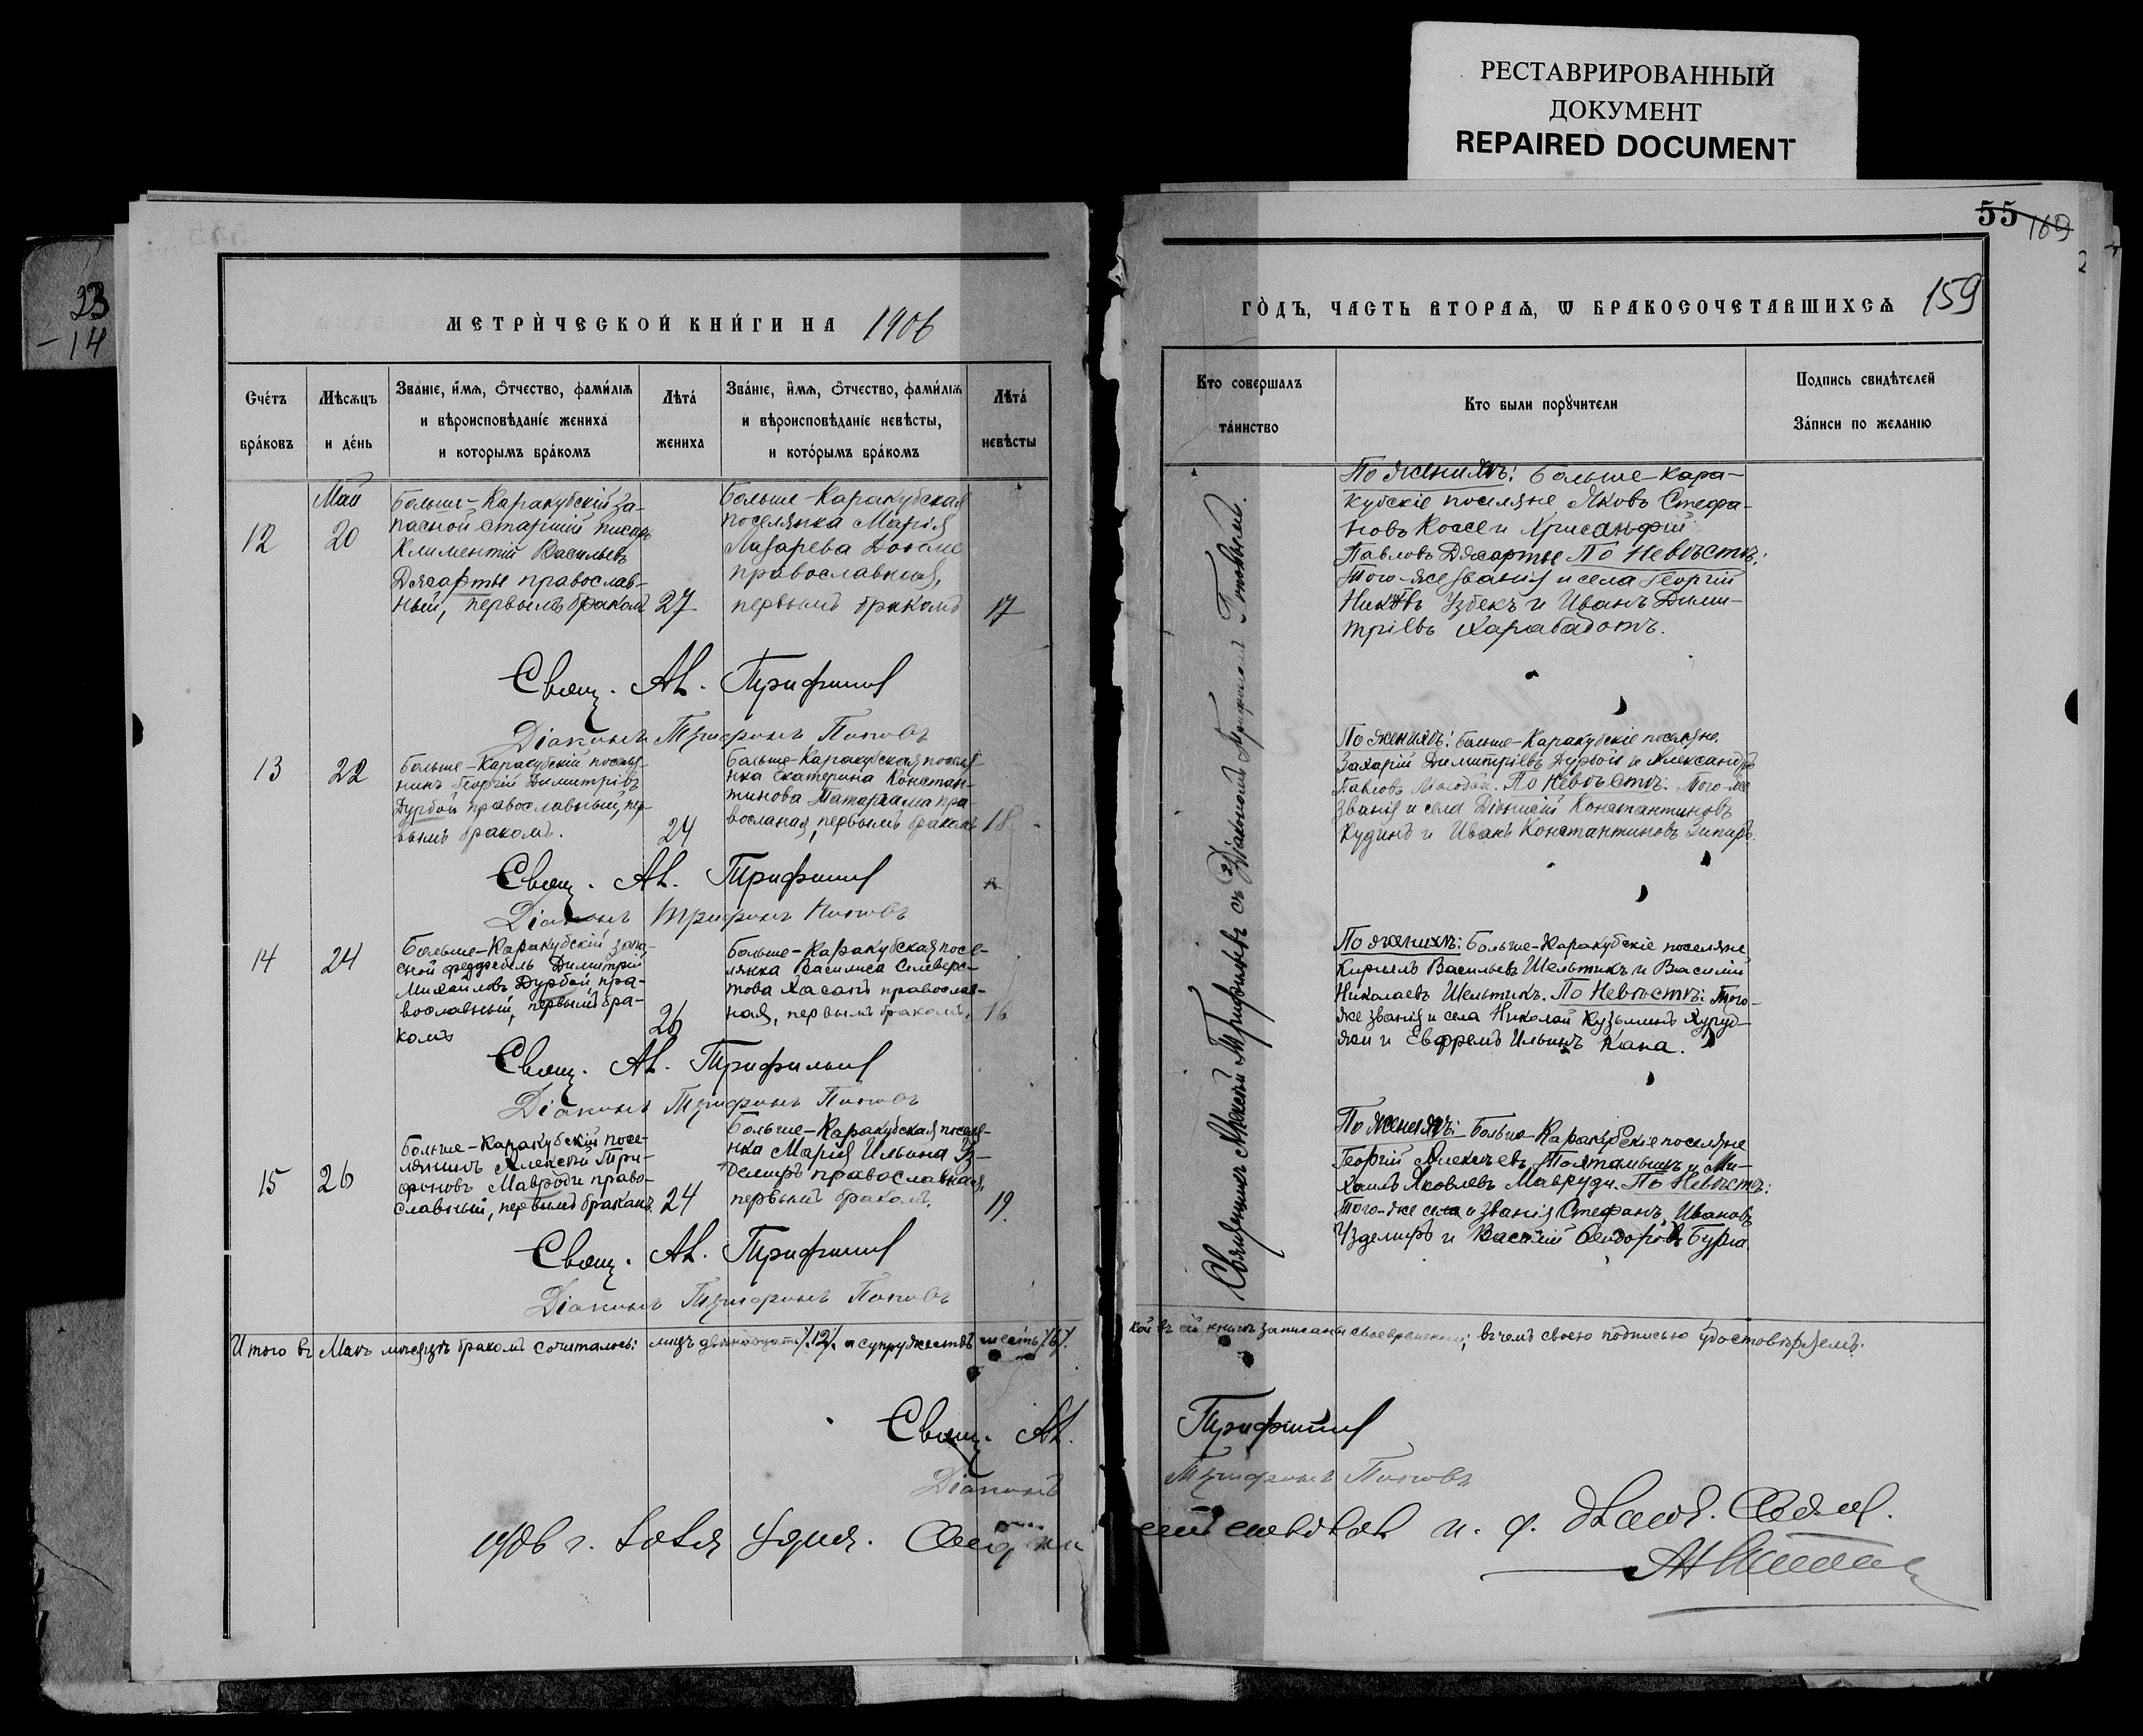 РЕСТАВРИРОВАННЫЙ
ДОКУМЕНТ
REPAIRED DOCUMENT
23
- 14
55 169
159
МЕТРИ́ЧЕСКОЙ КНИ́ГИ НА 1906
ГО́ДЪ, ЧАСТЬ ВТОРАѦ, Ѡ БРАКОСОЧЕТАВШИХСѦ
Сче́тъ
бра́ковъ
Мѣ́сѧцъ
и де́нь
Зва́нїе, и́мѧ, ѻ́тчество, фами́лїѧ
и вѣроисповѣ́данїе жениха̀
и которымъ бра́комъ
Лѣта̀
жениха
Зва́нїе, и́мѧ, ѻ́тчество, фами́лїѧ
и вѣроисповѣ́данїе невѣ́сты,
и кото́рымъ бра́комъ
Лѣта̀
невѣ́сты
Кто совершалъ
та́инство
Кто были порꙋ́чители
Подпись свидѣ́телей
За́писи по желанїю
Май
12
20
Больше-Каракубскій за-
пасной старшій писарь
Климентій Васильевъ
Джарты православ-
ный, первымъ бракомъ
27
Больше-Каракубская
поселянка Марія
Лазарева
православная,
первымъ бракомъ
17
По женихѣ: Больше-Кара-
кубскіе поселяне Яковъ Стефа-
новъ Коссе и Хрисанфій
Павловъ Джарты По Невѣстѣ:
Того-же званія и села Георгій
Узбекъ и Иванъ Дими-
тріевъ Харабадотъ.
Свящ. Ал. Трифильевъ
Діаконъ Трифонъ Поповъ
13
22
Больше-Каракубскій поселя-
нинъ Георгій Димитріевъ
Дурбой православный, пер-
вымъ бракомъ.
24
Больше-Каракубская поселя-
нка Екатерина Констан-
тинова Татархама пра-
вославная, первымъ бракомъ
18
По женихѣ: Больше-Каракубскіе поселяне
Захарій Димитріевъ Дурбой и Александръ
Павловъ По Невѣстѣ: Того-же
званія и села Діонисій Константиновъ
Кудинъ и Иванъ Константиновъ
Свящ. Ал. Трифильевъ
Діаконъ Трифонъ Поповъ
14
24
Больше-Каракубскій запа-
сной фельдфебель Димитрій
Михайловъ Дурбой, пра-
вославный, первымъ бра-
комъ
26
Больше-Каракубская посе-
лянка Василиса Селиверс-
това Хасанъ православ-
ная, первымъ бракомъ.
16
По женихѣ: Больше-Каракубскіе поселяне
Кириллъ Васильевъ Шельтикъ и Василій
Николаевъ Шельтикъ. По Невѣстѣ: Того-
же званія и села Николай Кузьминъ Хуруд-
жи и Евфремъ Ильинъ Кана.
Свящ. Ал. Трифильевъ
Діаконъ Трифонъ Поповъ
15
26
Больше-Каракубскій посе-
лянинъ Алексѣй Три-
фоновъ Мавроди право-
славный, первымъ бракомъ.
24
Больше-Каракубская поселя-
нка Марія Ильина Уз-
демиръ православная,
первымъ бракомъ.
19.
По Женихѣ: Больше-Каракубскіе поселяне
Георгій Алексѣевъ Тохтамышъ и Ми-
хаилъ Яковлевъ Мавруди. По Невѣстѣ:
Того-же села и званія Стефанъ Ивановъ
Уздемиръ и Василій Ѳеодоровъ Бурла
Свящ. Ал. Трифильевъ
Діаконъ Трифонъ Поповъ
Священникъ Алексѣй Трифильевъ съ Діакономъ Трифономъ Поповымъ.
Итого въ Маѣ мѣсяцѣ бракомъ сочеталось: лицъ двѣнадцать /.12/. а супружествъ шесть /.6/.
кои въ сей книгѣ записаны своевременно; въ чемъ своею подписью удостовѣряемъ.
Свящ. Ал. Трифильевъ
Діаконъ Трифонъ Поповъ
1906 г.